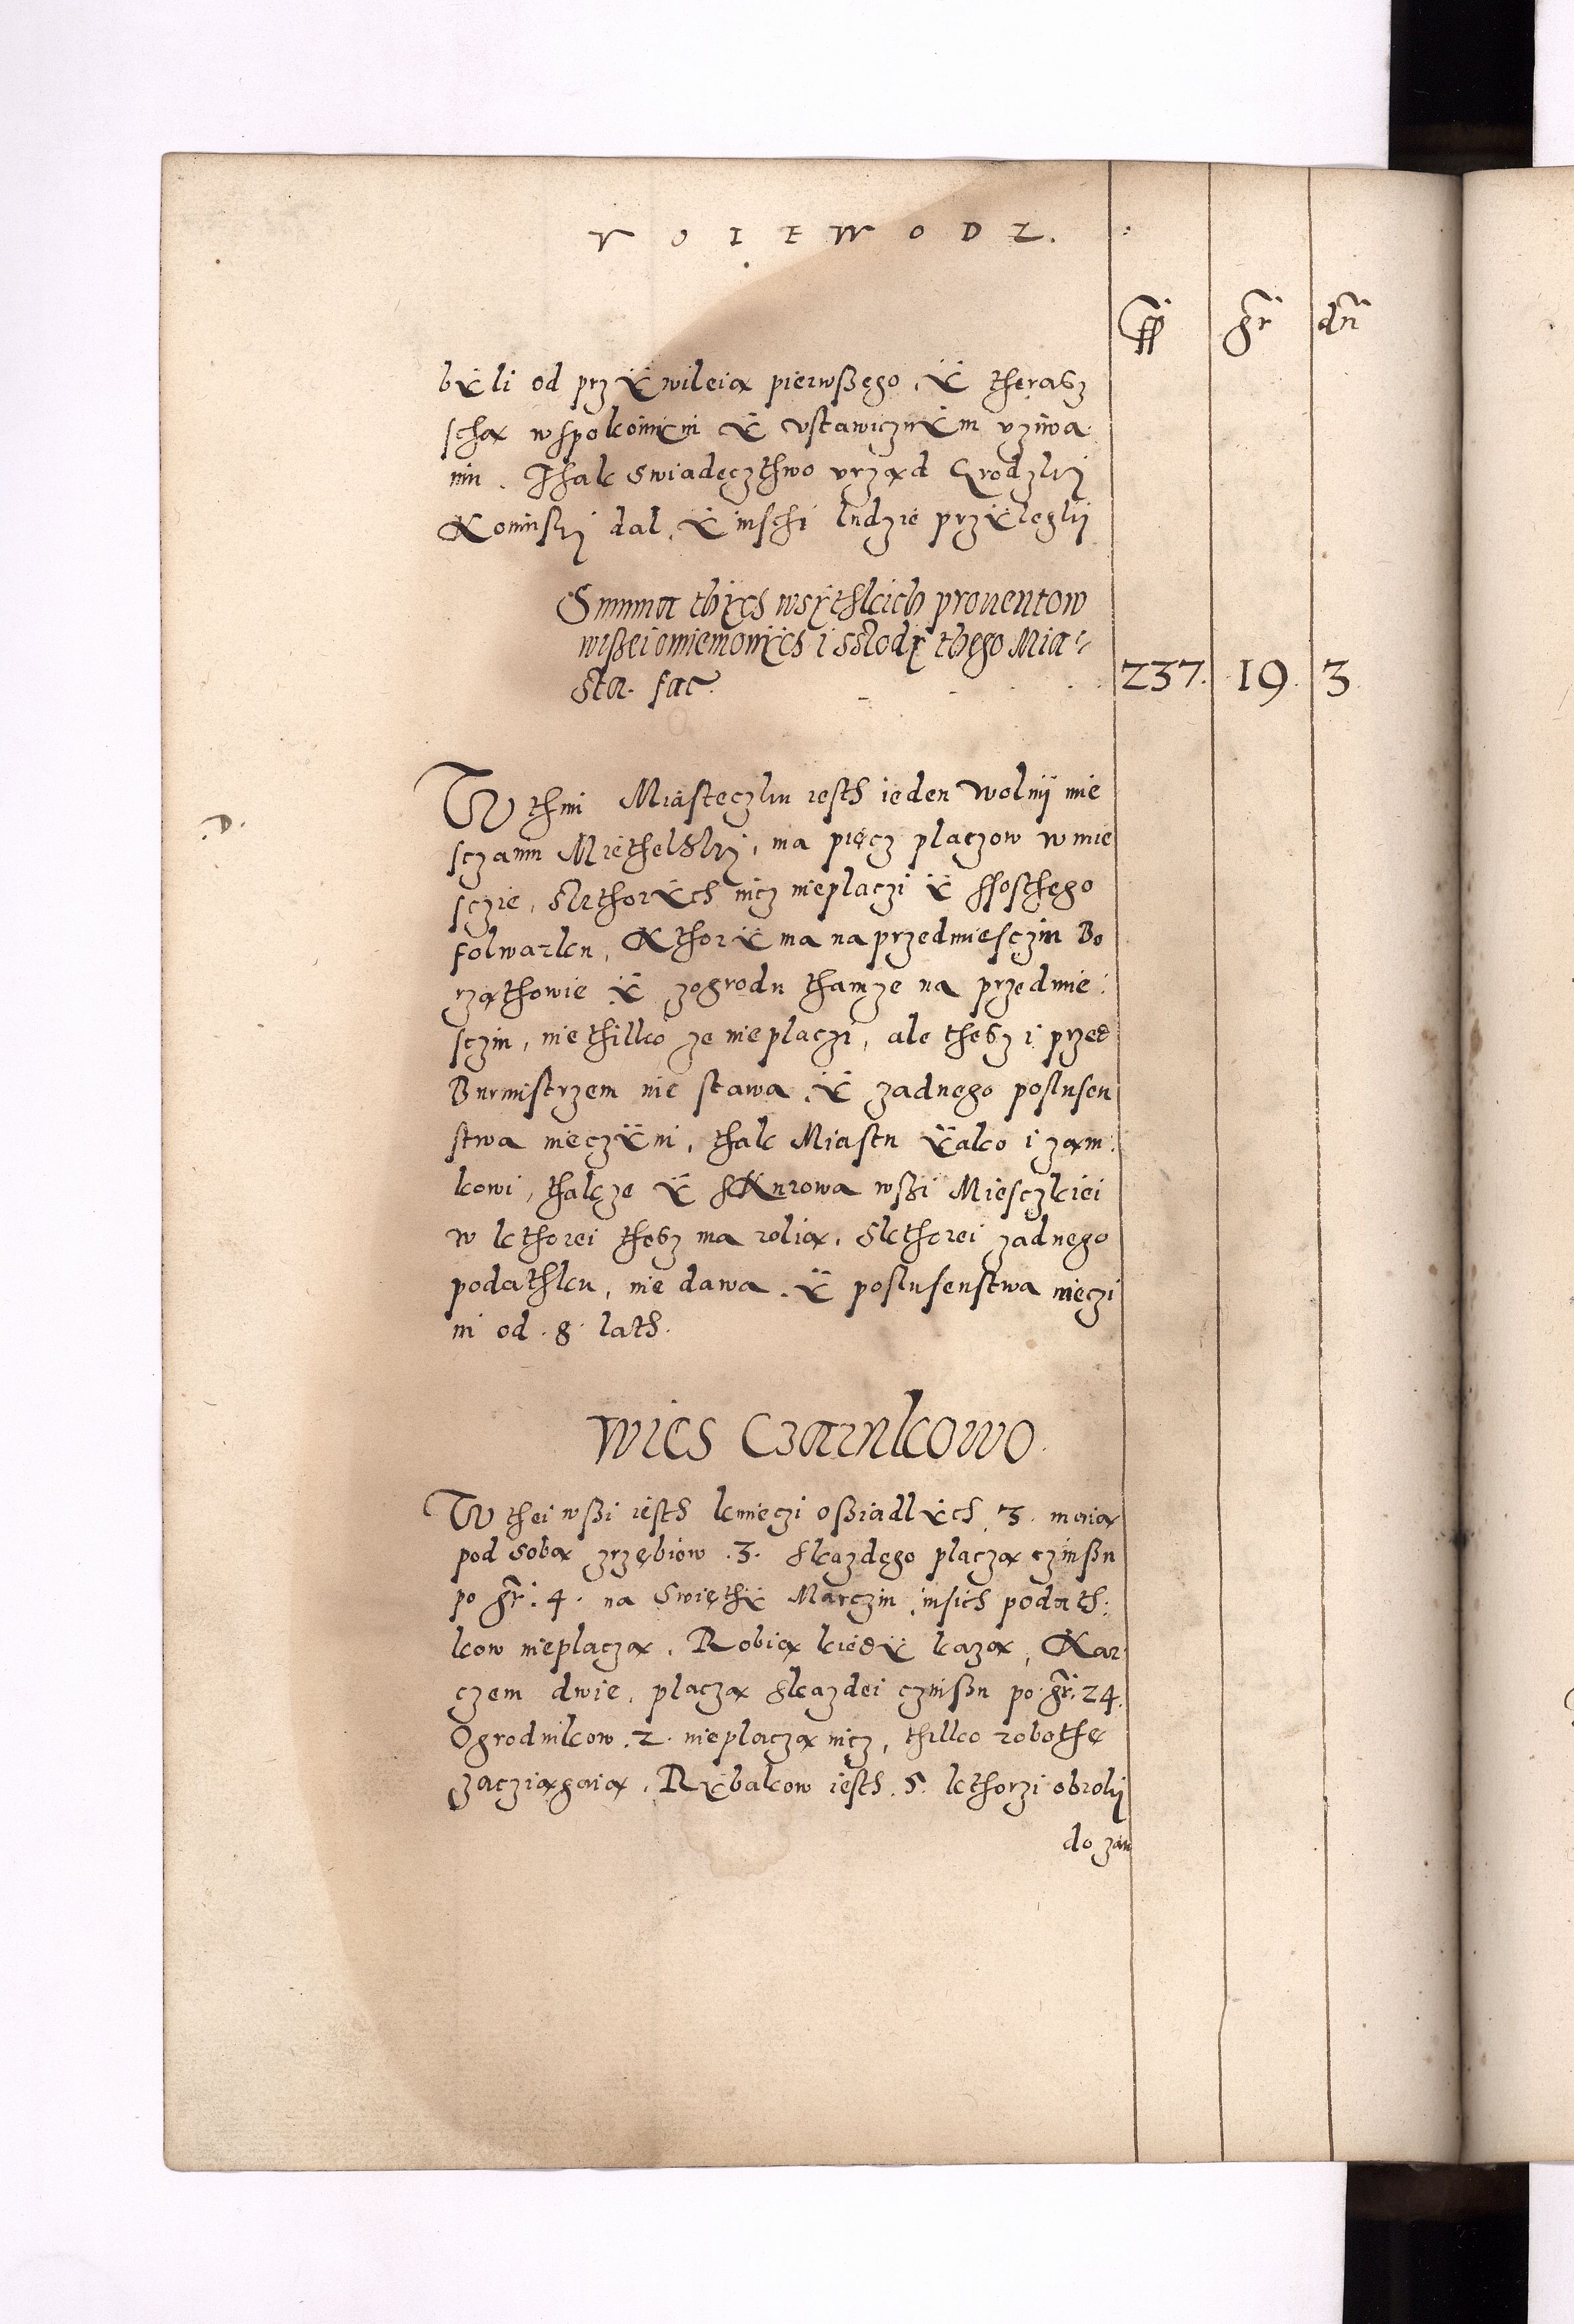 VOIEWODZ.
ff gr dn
bÿli od przÿwileia pierwßego, ÿ therasz
scha wspokoinÿm ÿ vstawicznÿm vziwa
niu. Thak swiadęczthwo vrzad Grodzki
Koninski dal, ÿ inschi ludzie przÿleglij
Summa thÿch wsÿthkich prouentow
wißei omiemonÿch i sslodÿ thego Mia-
sta. fac. 237. 19. 3
W thim Miasteczku iesth ieden wolnij mie
sczanin Miethelski, ma pięcz placzow w mie
sczie, skthorÿch nicz nieplaczi ÿ ssoschego
folwarku, Kthorÿ ma na przedmiesczin Bo
rzathowie ÿ zogrodu thamze na przedmie
sczin, nie thilko ze nieplaczi, ale thesz i przed
Burmistrzem nie stawa ÿ zadnego poslusen
stwa nieczÿni, thak Miastu ÿako i zam
kowi, thakze ÿ sKurowa wßi Miesczkiei
w kthorei thesz ma rolia, skthorei zadnego
podathku, nie dawa ÿ poslusenstwa nieczi
ni od .8. lath.
Wies Czarnkowo
W thei wßi iesth kmieczi oßiadlÿch 3. maia
pod soba zrzębiow .3. skazdego placza czinßu
po gr. 4. na Swiethÿ Marczin, insich podath
kow nieplacza. Robia kiedÿ kaza, Kar
czem dwie, placza skazdei czinßu po gr. 24.
Ogrodnikow .2. nieplacza nicz, thilko robothę
zacziagaia. Rÿbakow iesth .5. kthorzi obroki
do zam